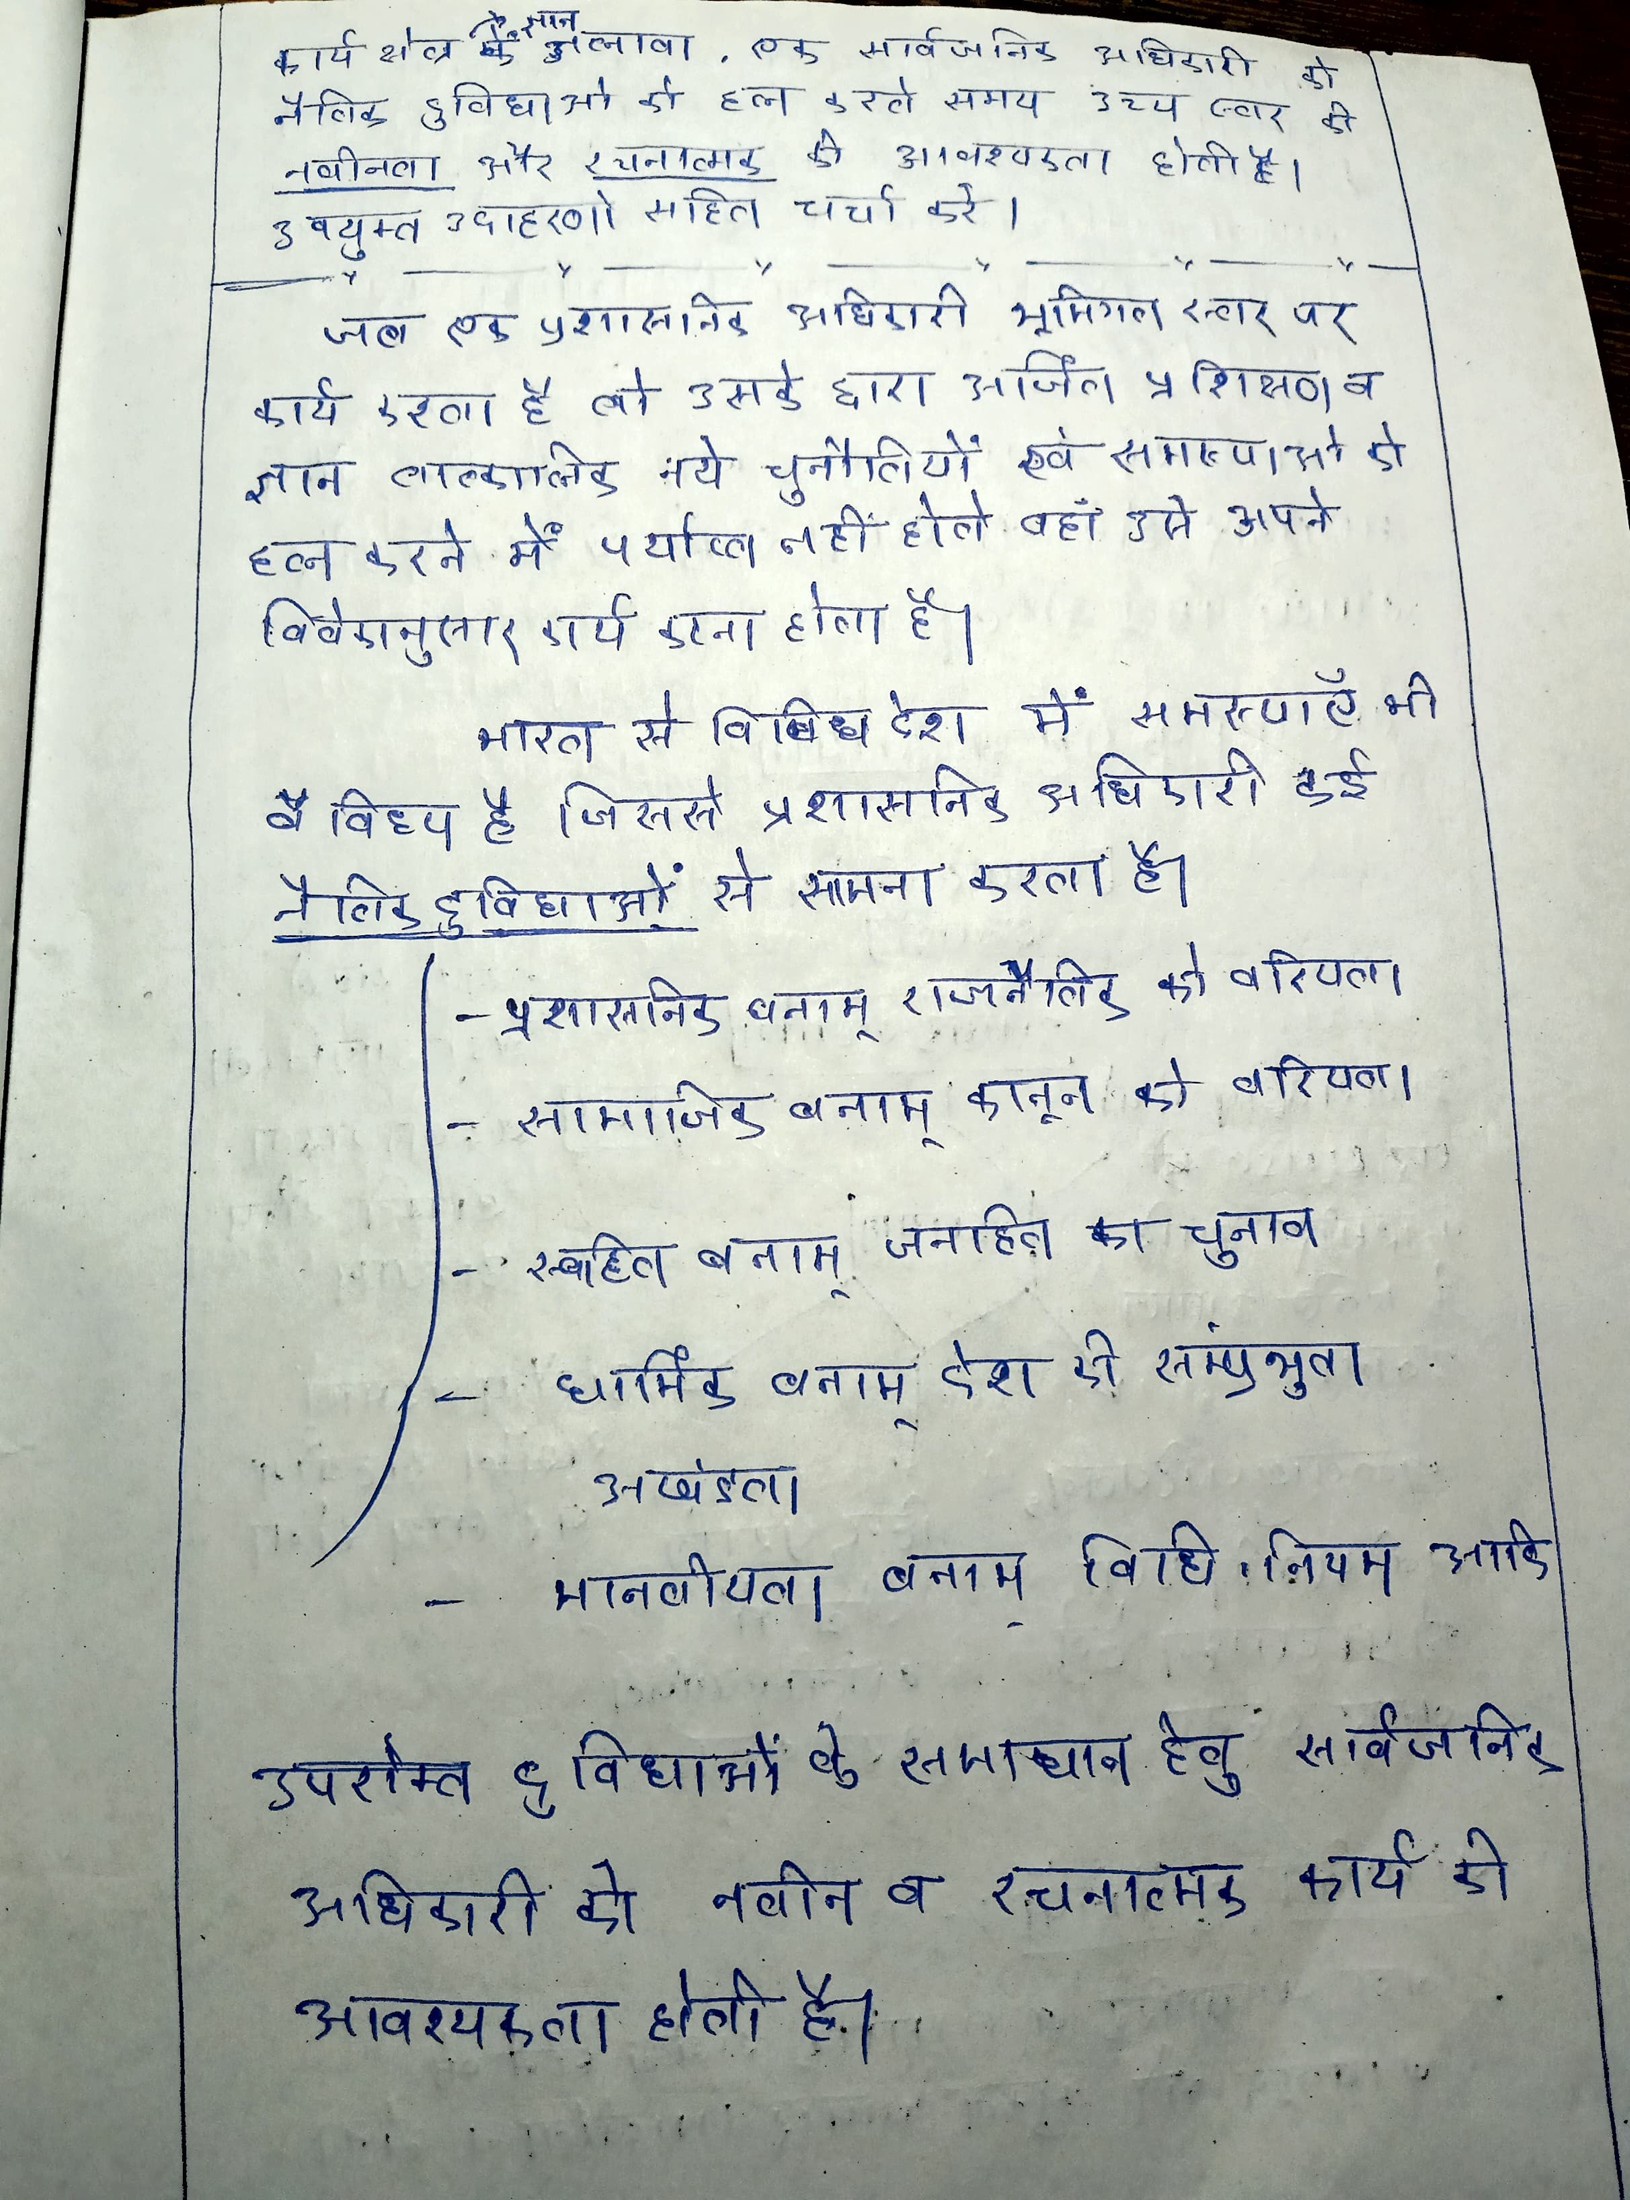 कार्य क्षेत्र के ज्ञान अलावा, एक सार्वजनिक अधिकारी को
नैतिक दुविधाओ को हल करते समय उच्च स्तर की
नवीनता और रचनात्मक की आवश्यकता होती है।
उपयुक्त उदाहरणो सहित चर्चा करे।
जब एक प्रशासनिक अधिकारी भूमिगत स्तर पर
कार्य करता है तो उसके द्वारा अर्जित प्रशिक्षण व
ज्ञान तात्कालिक नये चुनौतियों एवं समस्याओ को
हल करने में पर्याप्त नहीं होते वहाँ उसे अपने
विवेकानुसार कार्य करना होता है।
भारत से विविध देश में समस्याएँ भी
वैविध्य है जिससे प्रशासनिक अधिकारी कई
नैतिक दुविधाओं से सामना करता है।
- प्रशासनिक बनाम् राजनैतिक को वरियता
- सामाजिक बनाम् कानून को वरियता
- स्वहित बनाम् जनहित का चुनाव
- धार्मिक बनाम् देश की सम्प्रभुता
अखंडता
- मानवीयता बनाम् विधि, नियम आदि
उपरोक्त दुविधाओं के समाधान हेतु सार्वजनिक
अधिकारी को नवीन व रचनात्मक कार्य की
आवश्यकता होती है।